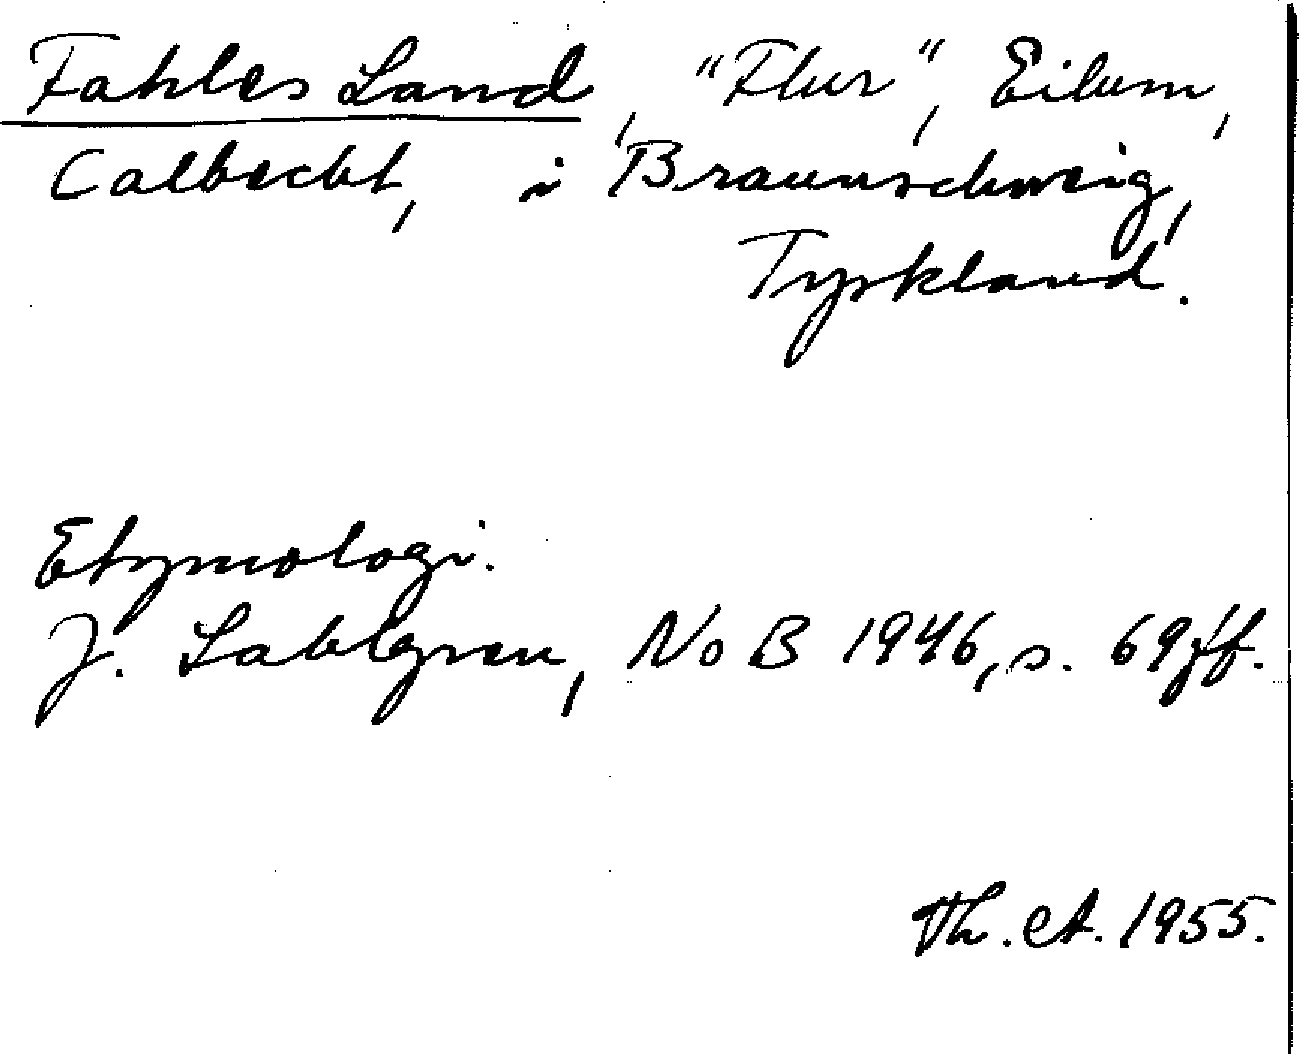 Fahles Land, "Flur", Eilum,
Calbecht, i Braunschweig,
Tyskland.
Etymologi.
J. Sahlgren, NoB 1946, s. 69ff.
Th. A. 1955.